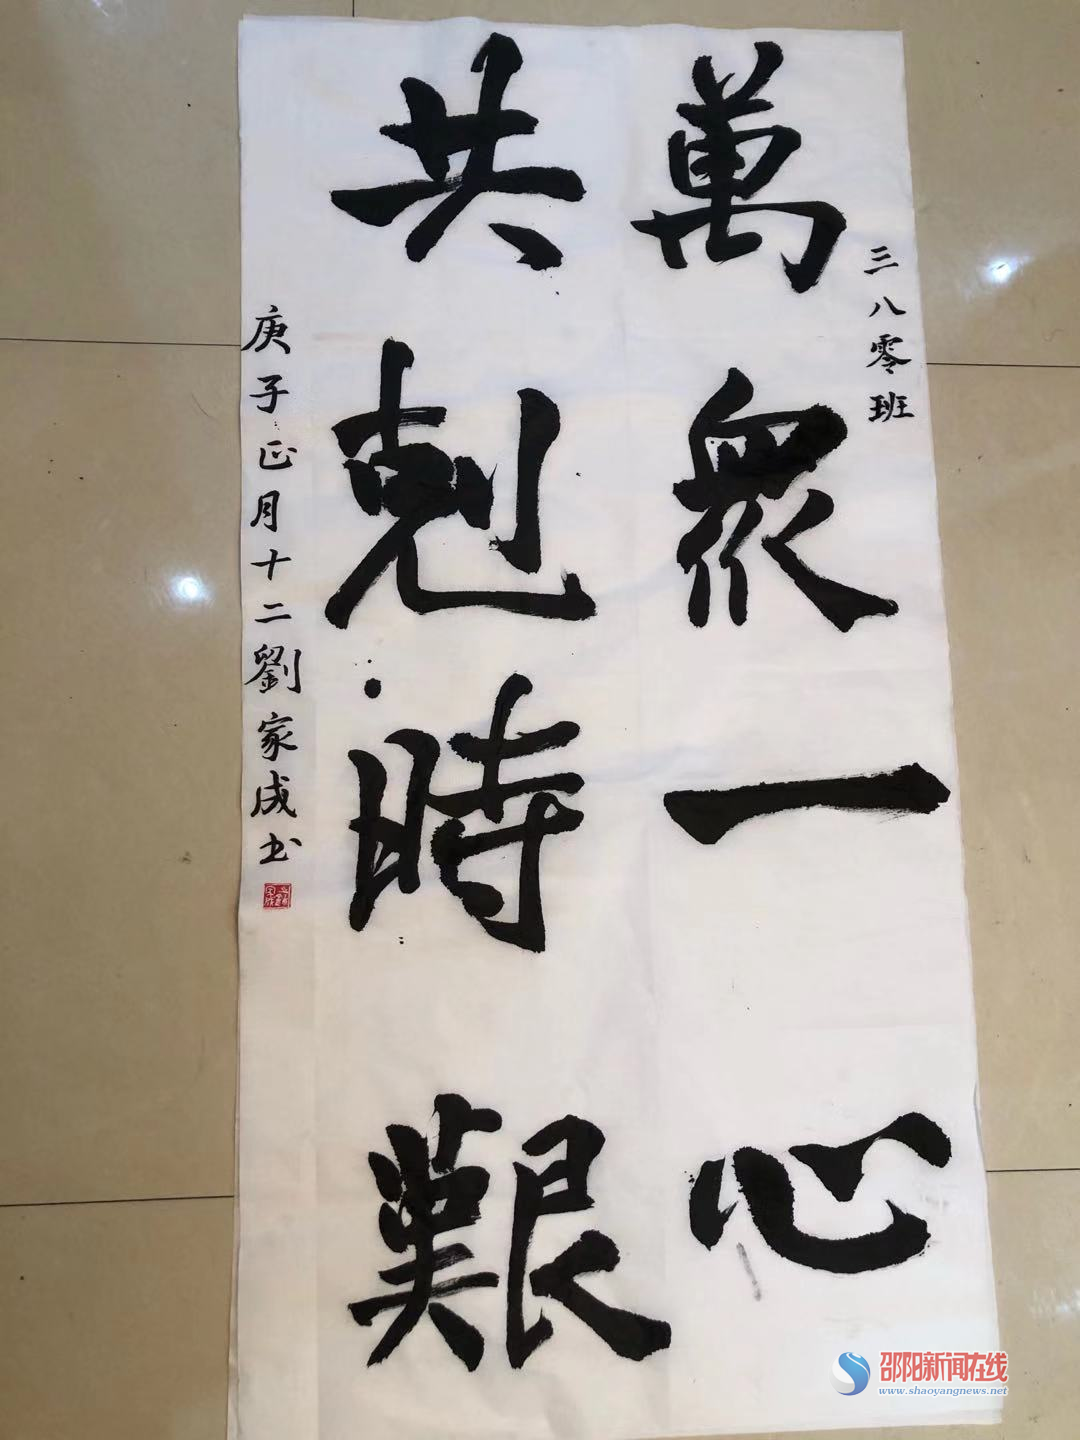 三八零班
萬眾一心
共剋時艱
庚子正月十二劉家成书
邵阳新闻在线
www.shaoyangnews.net